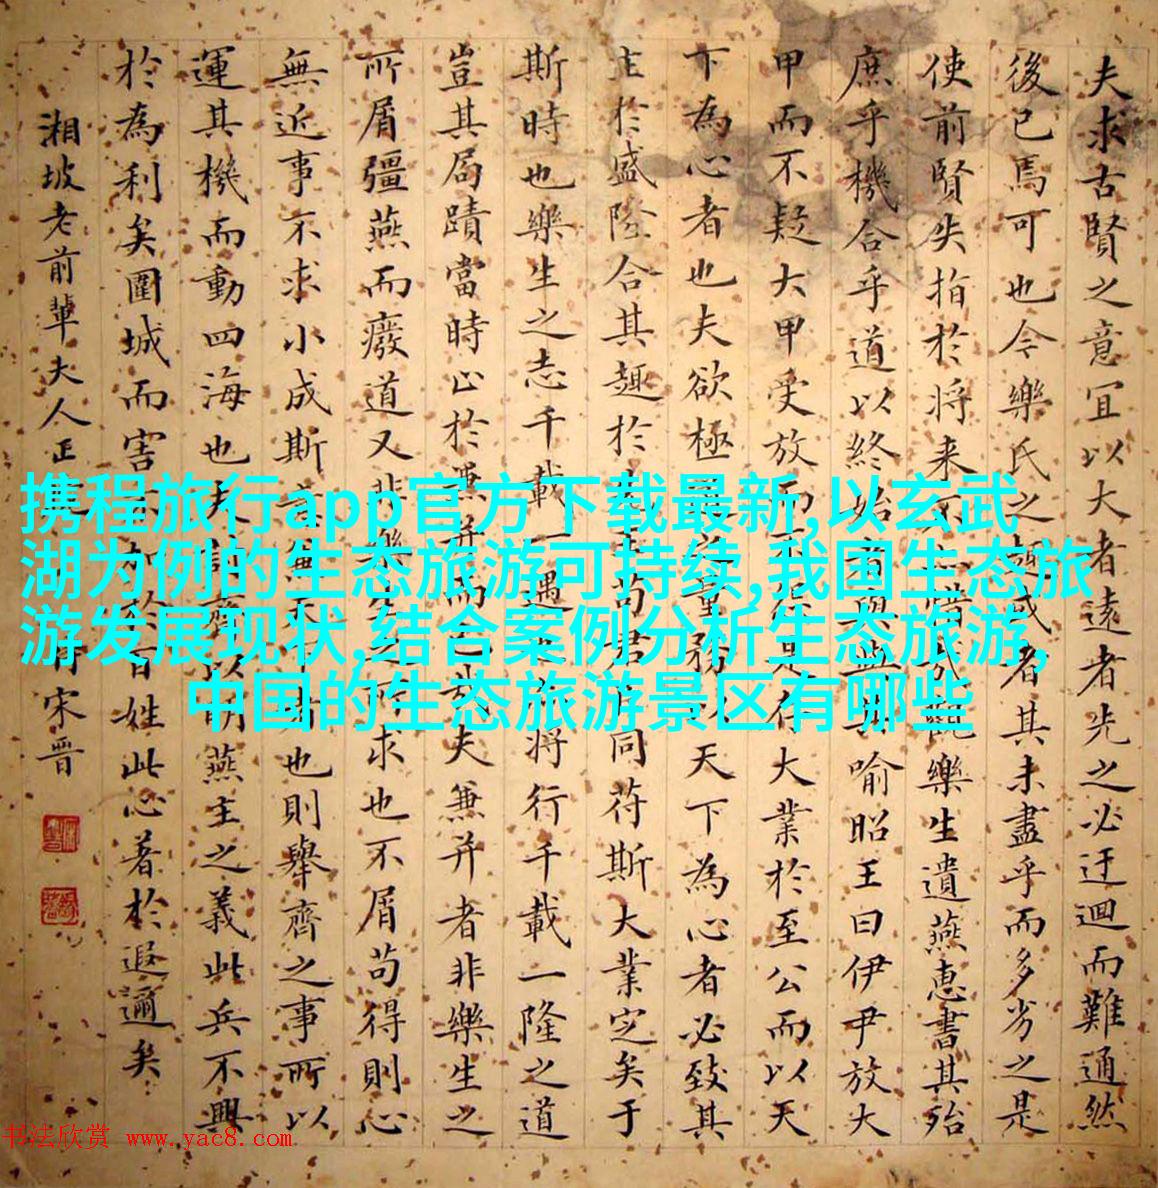 夫求古賢之意宜以大者遠者先之必迂迴而難通然
後已焉可也今樂氏之趣或者其未盡乎而多劣之是
使前賢失指於将来不亦惜哉觀樂生遺燕惠書其殆
庶乎機合乎道以終始者與其喻昭王曰伊尹放大
甲而不疑大甲受放而不怨是存大業於至公而以天
下為心者也夫欲極道之量務以天下為心者必致其
主於盛隆合其趣於先王苟君臣同苻斯大業定矣于
斯時也樂生之志千載一遇也亦将行千載一隆之道
豈其局蹟當時止於兼并而已哉夫兼并者非樂生之
所屑彊燕而廢道又非樂生之所求也不屑苟得則心
無近事不求小成斯意兼天下者也則舉齊之事所以
運其機而動四海也夫討齊以明燕主之義此兵不興
於為利矣圍城而害不加於百姓此心著於遐邇矣
湘坡老前輩夫人正 宋晋
携程旅行app官方下载最新,以玄武
湖为例的生态旅游可持续,我国生态旅
游发展现状,结合案例分析生态旅游,
中国的生态旅游景区有哪些
书法欣赏 www.yac8.com